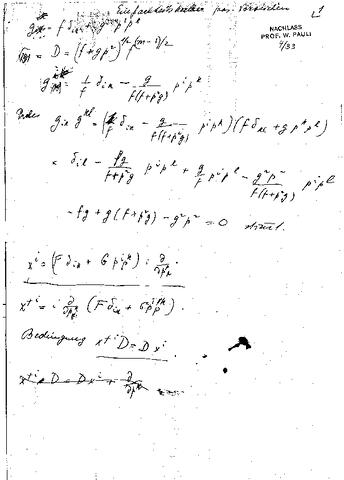 1
NACHLASS
PROF. W. PAULI
g_{ik} = f δ_{ik} + g p^i p^k
= D = (f+gp²)^{1/2} f^{(n-1)/2}
g^{ik} = 1/f δ_{ik} − g/f(f+p²g) p^i p^k
g_{ik} g^{kl} = (1/f δ_{ik} − g/f(f+p²g) p^i p^k)(f δ_{kl} + g p^k p^l)
= δ_{il} − fg/f+p²g p^i p^l + g/f p^i p^l − g²p²/f(f+p²g) p^i p^l
−fg + g(f+p²g) − g²p² = 0 stimmt.
x^i = (F δ_{ik} + G p^i p^k) i ∂/∂p^k
x^{+i} = i ∂/∂p^k (F δ_{ik} + G p^i p^k)
Bedingung x^{+i} D = D x^i.
x^{+i} D = D x^i + ∂/∂p^k